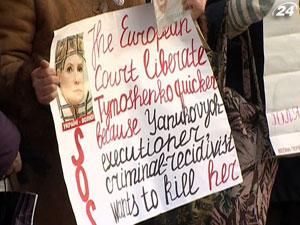 24
The European
Court liberate
Tymoshenko quicker
because Yanukovych
executioner,
criminal-recidivist
wants to kill her
SOS